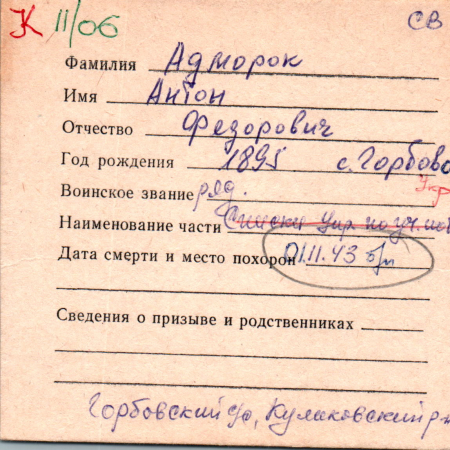 К 11/06 СВ
Фамилия Адморок
Имя Антон
Отчество Федорович
Год рождения 1895 с. Горбово
Укр
Воинское звание ряд.
Наименование части Списки Упр. по уч.
Дата смерти и место похорон 01.11.43
Сведения о призыве и родственниках
Горбовский с/с, Кулаковский р-н